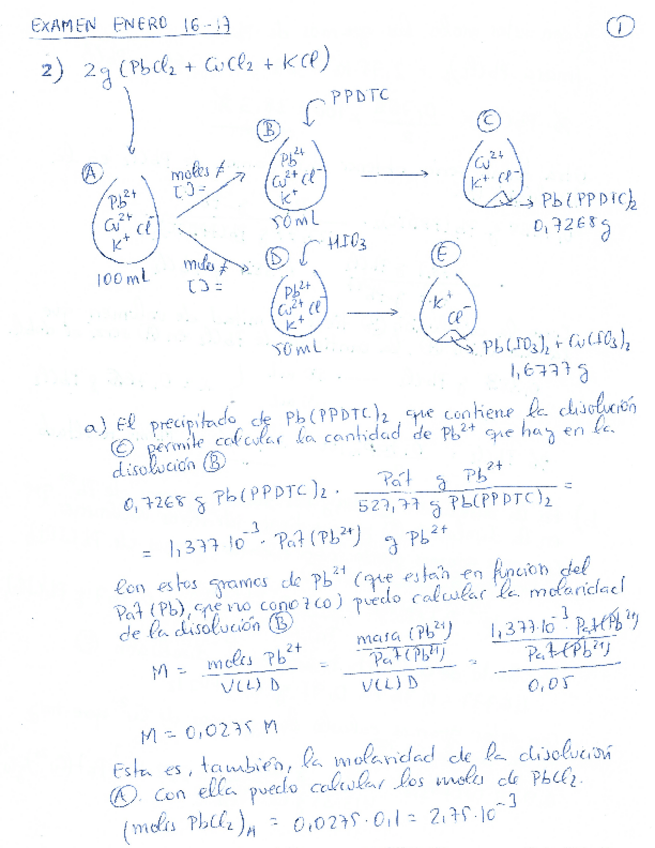 EXAMEN ENERO 16-17
1
2) 2g (PbCl2 + CuCl2 + KCl)
PPDTC
A
Pb2+
Cu2+ Cl-
K+
100 mL
moles ≠
[ ] =
moles ≠
[ ] =
B
Pb2+
Cu2+ Cl-
K+
50 mL
C
Cu2+
K+ Cl-
Pb(PPDTC)2
0,7268 g
HIO3
D
Pb2+
Cu2+ Cl-
K+
50 mL
E
K+
Cl-
Pb(IO3)2 + Cu(IO3)2
1,6777 g
a) El precipitado de Pb(PPDTC)2 que contiene la disolución
C permite calcular la cantidad de Pb2+ que hay en la
disolución B
0,7268 g Pb(PPDTC)2 · Pat g Pb2+ / 527,77 g Pb(PPDTC)2 =
= 1,377 10^-3 · Pat (Pb2+) g Pb2+
Con estos gramos de Pb2+ (que están en función del
Pat (Pb), que no conozco) puedo calcular la molaridad
de la disolución B
M = moles Pb2+ / V(L) D = masa (Pb2+) / Pat (Pb2+) / V(L) D = 1,377·10^-3 · Pat(Pb2+) / Pat(Pb2+) / 0,05
M = 0,0275 M
Esta es, también, la molaridad de la disolución
A. Con ella puedo calcular los moles de PbCl2.
(moles PbCl2)A = 0,0275 · 0,1 = 2,75·10^-3